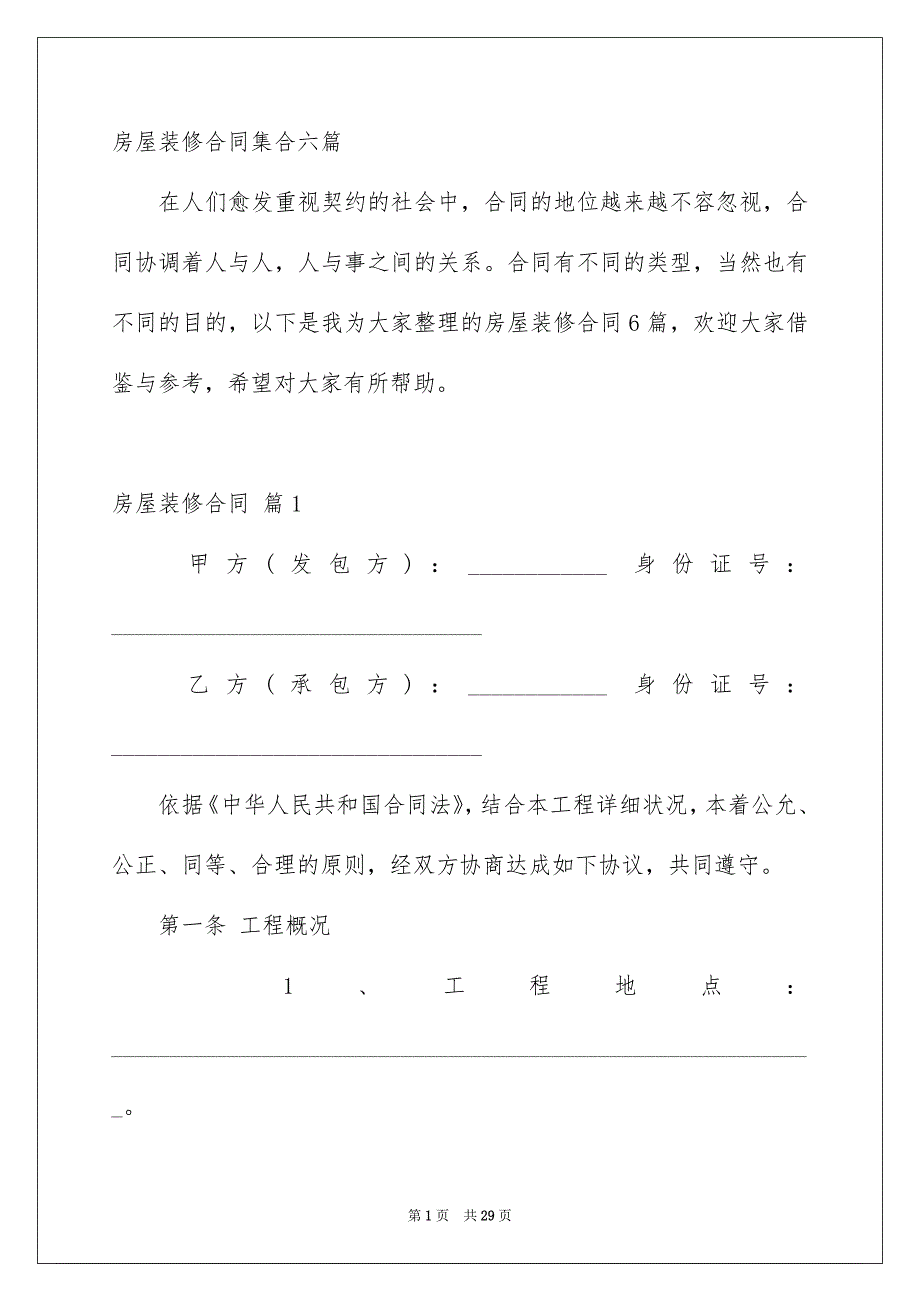 房屋装修合同集合六篇
在人们愈发重视契约的社会中，合同的地位越来越不容忽视，合
同协调着人与人，人与事之间的关系。合同有不同的类型，当然也有
不同的目的，以下是我为大家整理的房屋装修合同 6 篇，欢迎大家借
鉴与参考，希望对大家有所帮助。
房屋装修合同 篇 1
甲方(发包方)：____________ 身份证号：
________________________________
乙方(承包方)：____________ 身份证号：
________________________________
依据《中华人民共和国合同法》，结合本工程详细状况，本着公允、
公正、同等、合理的原则，经双方协商达成如下协议，共同遵守。
第一条 工程概况
1、工程地点：
____________________________________________________________
_。
第 1 页 共 29 页